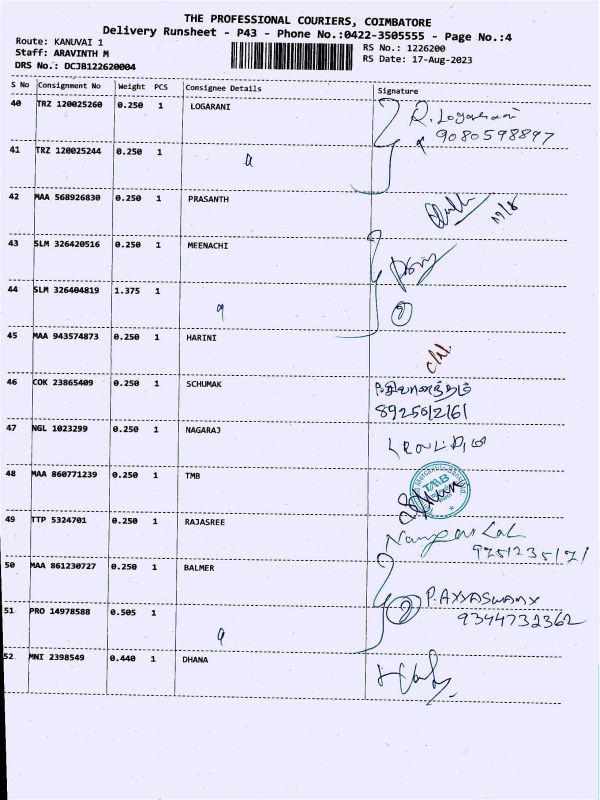 THE PROFESSIONAL COURIERS, COIMBATORE
Delivery Runsheet - P43 - Phone No.:0422-3505555 - Page No.:4
Route: KANUVAI 1
Staff: ARAVINTH M
DRS No.: DCJB122620004
RS No.: 1226200
RS Date: 17-Aug-2023
S No Consignment No Weight PCS Consignee Details Signature
40 TRZ 120025260 0.250 1 LOGARANI R. Logarani
9080598897
41 TRZ 120025244 0.250 1
42 MAA 568926830 0.250 1 PRASANTH 17/8
43 SLM 326420516 0.250 1 MEENACHI
44 SLM 326404819 1.375 1
45 MAA 943574873 0.250 1 HARINI
46 COK 23865409 0.250 1 SCHUMAK
8925612161
47 NGL 1023299 0.250 1 NAGARAJ
48 MAA 860771239 0.250 1 TMB TMB
49 TTP 5324701 0.250 1 RAJASREE
9751235171
50 MAA 861230727 0.250 1 BALMER P.AYYASWAMY
9344732362
51 PRO 14978588 0.505 1
52 MNI 2398549 0.440 1 DHANA